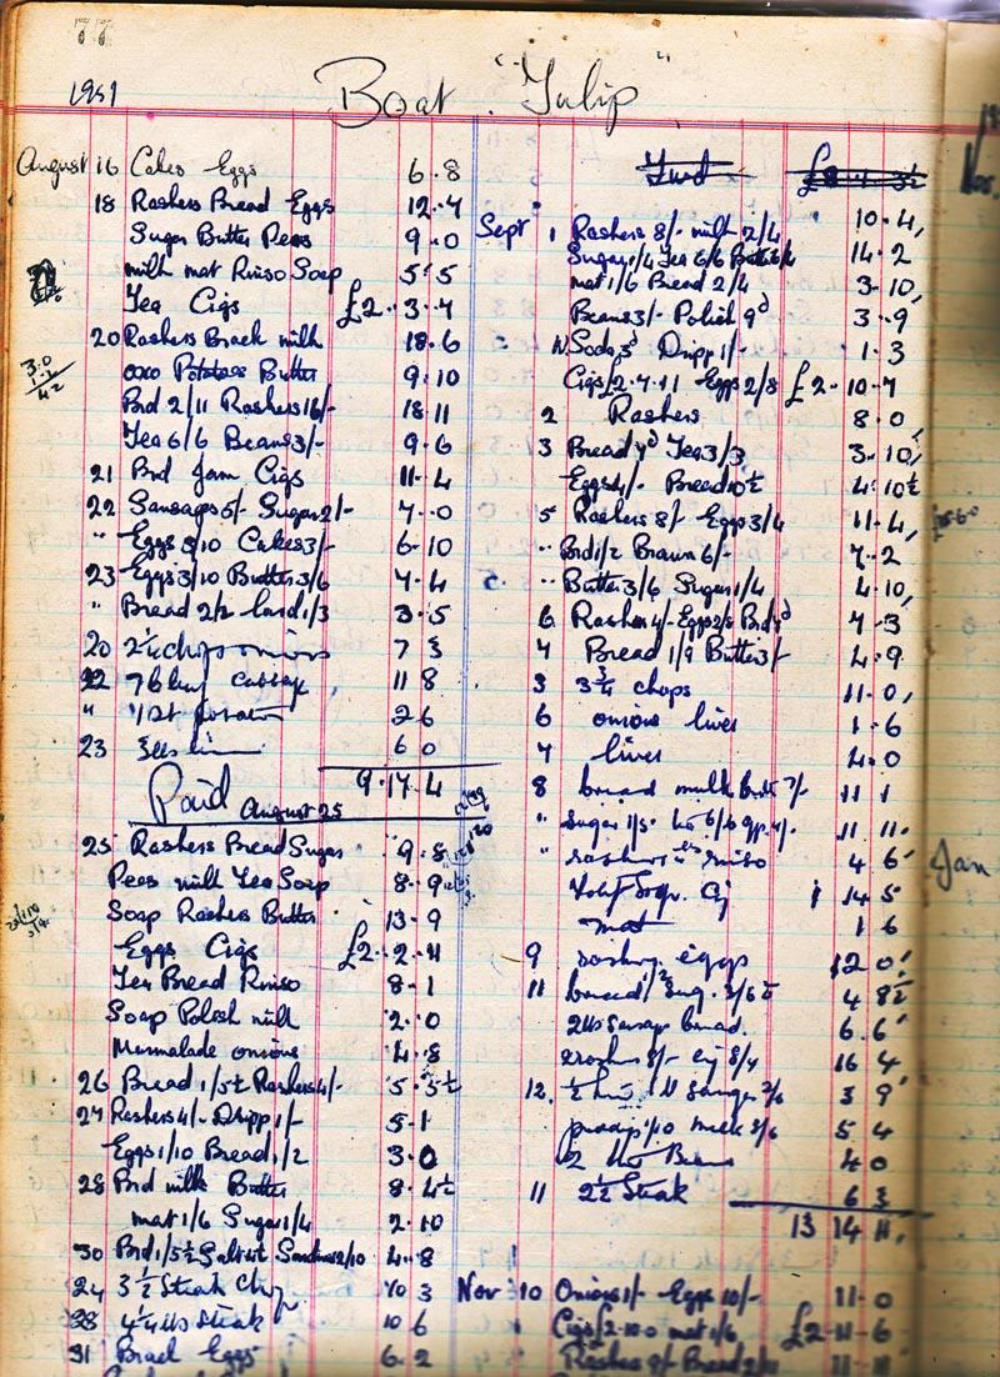 77
1951 Boat "Tulip"
August 16 Cakes Eggs 6.8
18 Rashers Bread Eggs 12.4
Sugar Butter Peas 9.0
milk mat Rinso Soap 5.5
Tea Cigs £2.3.4
20 Rashers Brack milk 18.6
oxo Potatoes Butter 9.10
Brd 2/11 Rashers 16/- 18 11
Tea 6/6 Beans 3/- 9.6
21 Brd Jam Cigs 11.4
22 Sausages 5/- Sugar 2/- 7.0
" Eggs 3/10 Cakes 3/- 6.10
23 Eggs 3/10 Butter 3/6 7.4
" Bread 2/2 Lard 1/3 3.5
20 2¼ chops onions 7 3
22 cabbage 11 8
" 2 6
23 6 0
9.17 4
Paid August 25
25 Rashers Bread Sugar 9.8
Peas milk Tea Soap 8.9
Soap Rashers Butter 13.9
Eggs Cigs £2.2.11
Tea Bread Rinso 8.1
Soap Polish milk 2.0
Marmalade onions 4.8
26 Bread 1/5½ Rashers 4/- 5.5½
27 Rashers 4/- Dripp 1/- 5.1
Eggs 1/10 Bread 1/2 3.0
28 Brd milk Butter 8.4½
mat 1/6 Sugar 1/4 2.10
30 Brd 1/5½ Salt Sardines 2/10 4.8
24 3½ Steak Chop 10 3
28 4¼ lbs steak 10 6
31 Bread Eggs 6.2
Fwd
Sept 1 Rashers 8/- milk 2/4 10.4
Sugar 1/4 Tea 6/6 Butter 14.2
mat 1/6 Bread 2/4 3.10
Beans 3/- Polish 9d 3.9
W Soda 3d Dripp 1/- 1.3
Cigs £2.7.11 Eggs 2/8 £2.10.7
2 Rashers 8.0
3 Bread 7d Tea 3/3 3.10
Eggs 4/- Bread 10½ 4.10½
5 Rashers 8/- Eggs 3/4 11.4
" Brd 1/2 Brawn 6/- 7.2
" Butter 3/6 Sugar 1/4 4.10
6 Rashers 4/- Eggs 2/8 Brd 7d 7.3
7 Bread 1/9 Butter 3/- 4.9
3 3¾ chops 11.0
6 onions liver 1.6
7 liver 4.0
8 bread milk Butt 7/- 11 1
" Sugar 1/5 11 11
" rashers rinso 4 6
Soap 1 14 5
mat 1 6
9 rashers eggs 12 0
11 bread Sug. 4 8½
2 lbs Sausage bread. 6.6
rashers 8/- eg 8/4 16 4
12. 3 9
milk 3/6 5 4
2 Beans 4 0
11 2½ Steak 6 3
13 14 11
Nov 10 Onions 1/- Eggs 10/- 11.0
Cigs £2.10.0 mat 1/6 £2.11.6
Rashers 9/- Bread
Nov.
Jan